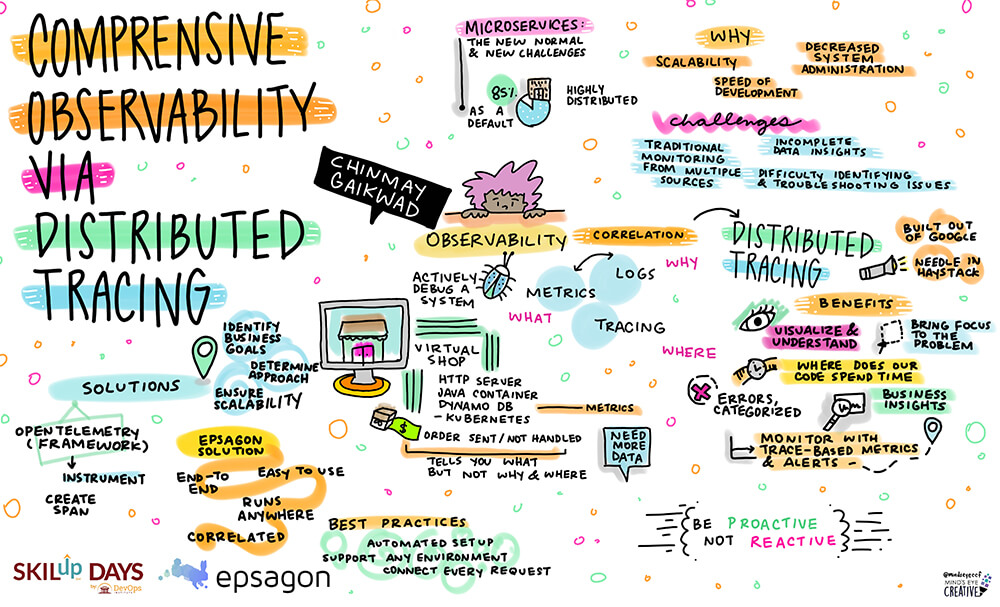 COMPRENSIVE
OBSERVABILITY
VIA
DISTRIBUTED
TRACING
MICROSERVICES:
THE NEW NORMAL
& NEW CHALLENGES
85%
AS A
DEFAULT
HIGHLY
DISTRIBUTED
WHY
SCALABILITY
DECREASED
SYSTEM
ADMINISTRATION
SPEED OF
DEVELOPMENT
challenges
TRADITIONAL
MONITORING
FROM MULTIPLE
SOURCES
INCOMPLETE
DATA INSIGHTS
DIFFICULTY IDENTIFYING
& TROUBLESHOOTING ISSUES
CHINMAY
GAIKWAD
OBSERVABILITY
CORRELATION
ACTIVELY
DEBUG A
SYSTEM
METRICS
LOGS
TRACING
WHAT
WHY
WHERE
VIRTUAL
SHOP
HTTP SERVER
JAVA CONTAINER
DYNAMO DB
- KUBERNETES
METRICS
$
ORDER SENT/NOT HANDLED
TELLS YOU WHAT
BUT NOT WHY & WHERE
NEED
MORE
DATA
DISTRIBUTED
TRACING
BUILT OUT
OF GOOGLE
NEEDLE IN
HAYSTACK
BENEFITS
VISUALIZE &
UNDERSTAND
BRING FOCUS
TO THE
PROBLEM
WHERE DOES OUR
CODE SPEND TIME
ERRORS,
CATEGORIZED
BUSINESS
INSIGHTS
MONITOR WITH
TRACE-BASED METRICS
& ALERTS -
BE PROACTIVE
NOT REACTIVE
SOLUTIONS
IDENTIFY
BUSINESS
GOALS
DETERMINE
APPROACH
ENSURE
SCALABILITY
OPENTELEMETRY
(FRAMEWORK)
INSTRUMENT
CREATE
SPAN
EPSAGON
SOLUTION
END-TO
END
EASY TO USE
RUNS
ANYWHERE
CORRELATED
BEST PRACTICES
AUTOMATED SETUP
SUPPORT ANY ENVIRONMENT
CONNECT EVERY REQUEST
SKILup DAYS
by DevOps
epsagon
@mindseyeccf
MIND'S EYE
CREATIVE